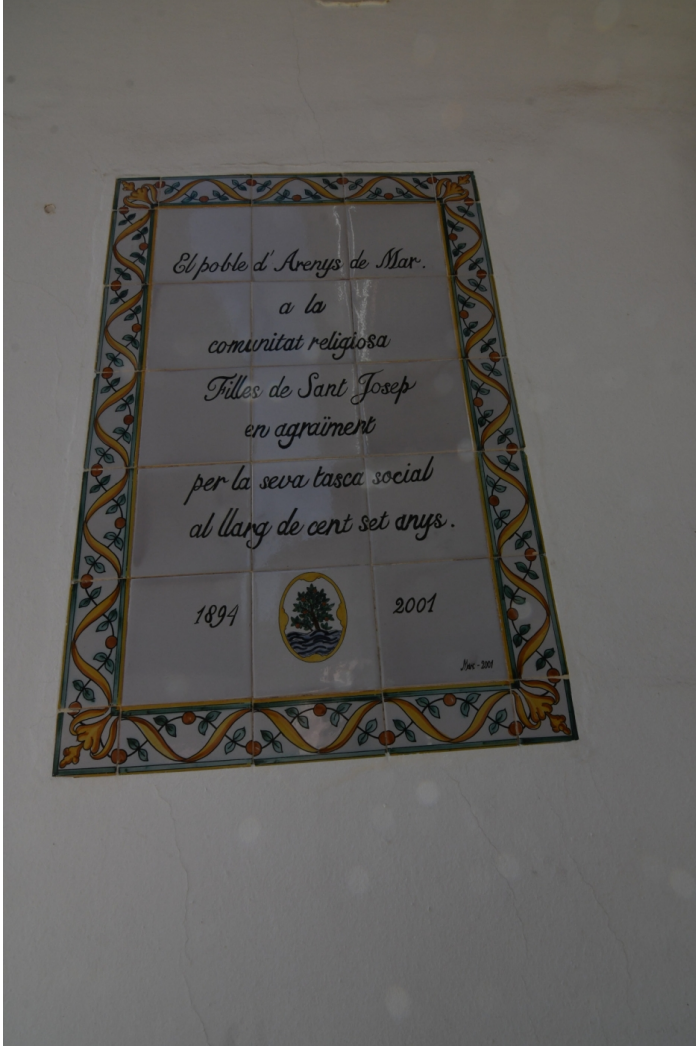 El poble d' Arenys de Mar.
a la
comunitat religiosa
Filles de Sant Josep
en agraïment
per la seva tasca social
al llarg de cent set anys.
1894 2001
2001